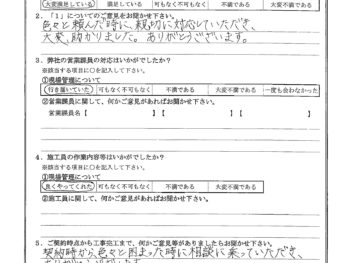 大変満足している 満足している 可もなく不可もなく 不満である 大変不満である
2.「1」についてのご意見をお聞かせ下さい。
色々と頼んだ時に、親切に対応していただき、
大変、助かりました。ありがとうございます。
3. 弊社の営業課員の対応はいかがでしたか?
※該当する項目に○を記入して下さい。
①現場管理について
行き届いていた 可もなく不可もなく 不満である 大変不満である 一度も会わなかった
②営業課員に関して、何かご意見があればお聞かせ下さい。
営業課員名【 】【 】【
4. 施工員の作業内容等はいかがでしたか?
※該当する項目に○を記入して下さい。
①現場管理について
良くやってくれた 可もなく不可もなく 不満である 大変不満である
②施工員に関して、何かご意見があればお聞かせ下さい。
5. ご契約時点から工事完工まで、何かご意見等がありましたらお聞かせ下さい。
契約時から色々と困まった時に相談に乗っていただき、